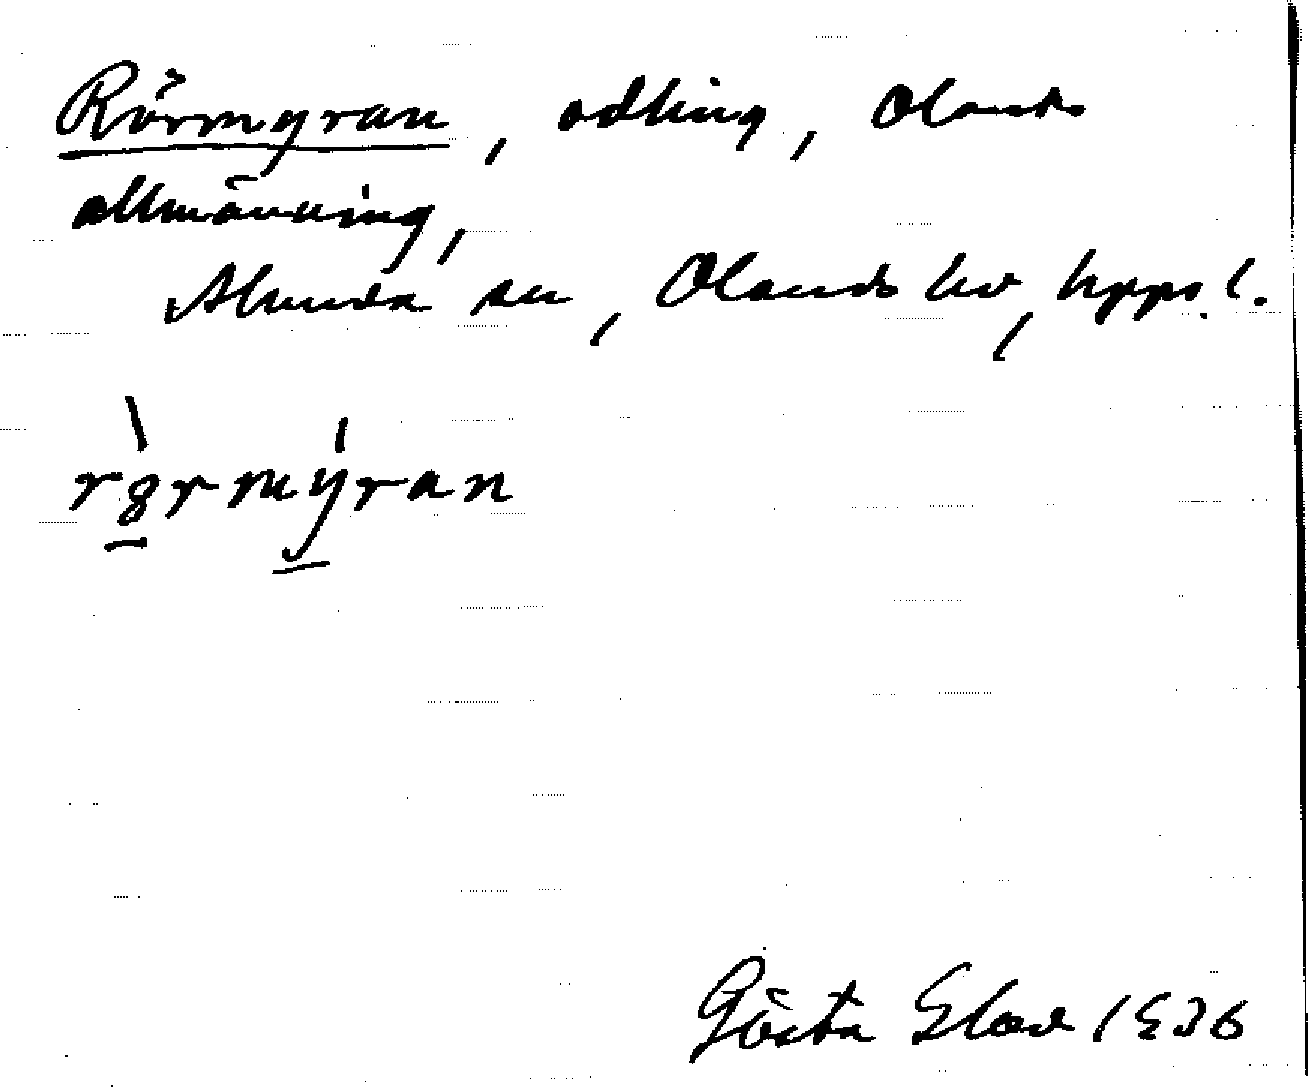 Rörmyran, odling, Olands
allmänning,
Alunda sn, Olands hd, Upps. l.
rörmyran
Gösta Elve 1936